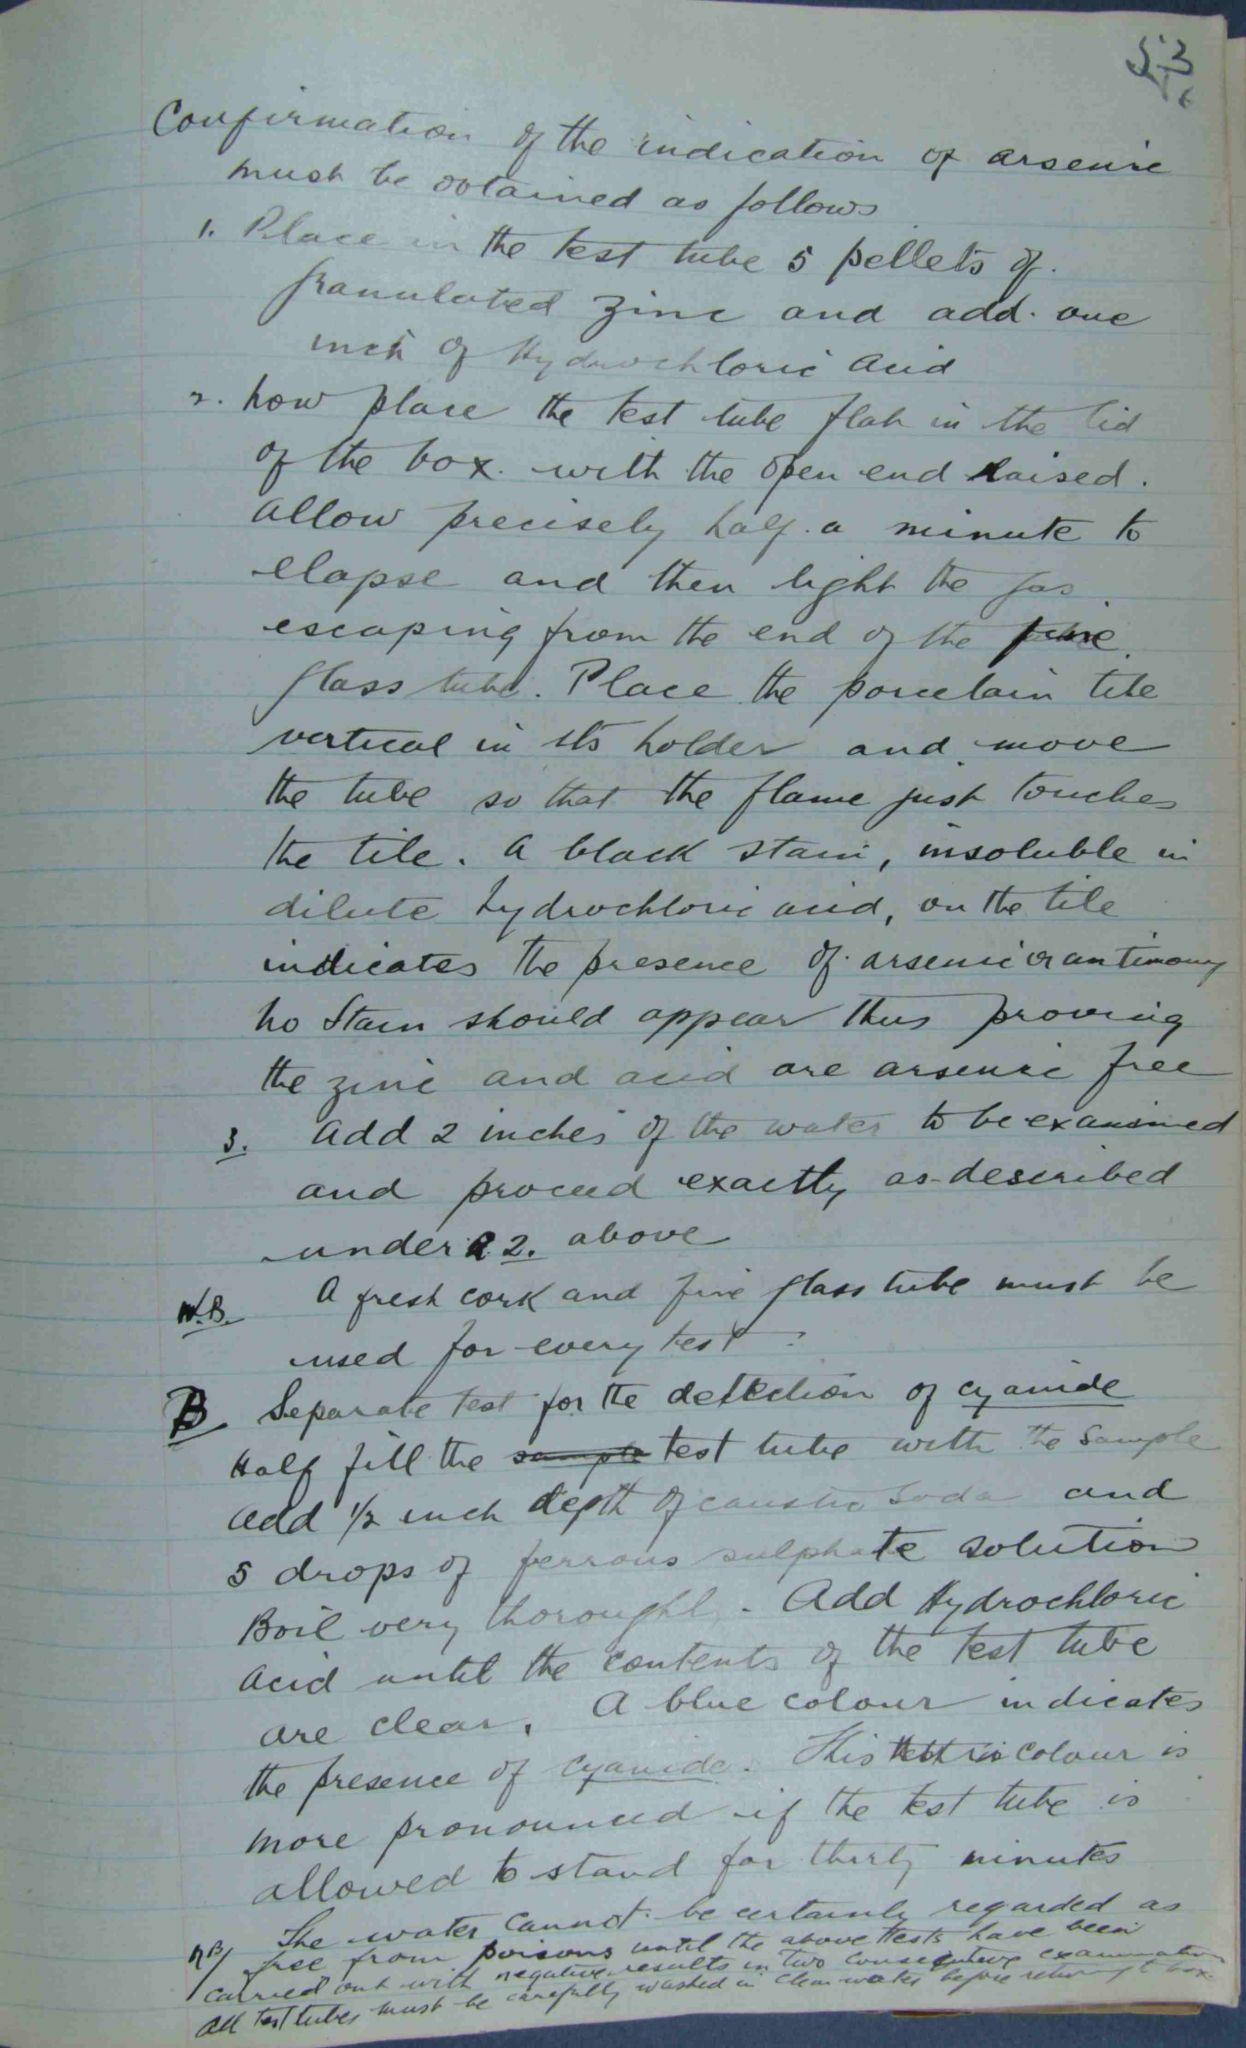 53
Confirmation of the indication of arsenic
must be obtained as follows
1. Place in the test tube 5 pellets of
granulated zinc and add one
inch of Hydrochloric Acid
2. Now place the test tube flat in the lid
of the box with the open end raised.
Allow precisely half a minute to
elapse and then light the gas
escaping from the end of the fine
glass tube. Place the porcelain tile
vertical in its holder and move
the tube so that the flame just touches
the tile. A black stain, insoluble in
dilute hydrochloric acid, on the tile
indicates the presence of arsenic or antimony
No Stain should appear thus proving
the zinc and acid are arsenic free
3. Add 2 inches of the water to be examined
and proceed exactly as described
under 2. above
N.B. A fresh cork and fine glass tube must be
used for every test.
B Separate test for the detection of cyanide
Half fill the sample test tube with the sample
Add 1/2 inch depth of caustic soda and
5 drops of ferrous sulphate solution
Boil very thoroughly. Add Hydrochloric
acid until the contents of the test tube
are clear. A blue colour indicates
the presence of cyanide. This colour is
more pronounced if the test tube is
allowed to stand for thirty minutes
NB/ The water cannot be certainly regarded as
free from poisons until the above tests have been
carried out with negative results in two consecutive examination
All test tubes must be carefully washed in clean water before return to box.